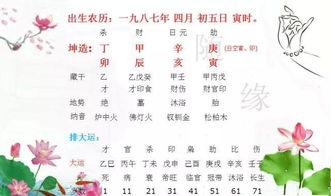 出生农历:一九八七年 四月 初五日 寅时。
杀 财 日元 劫
坤造: 丁 甲 辛 庚 (日空官、印)
卯 辰 亥 寅
藏干 乙 乙戊癸 甲壬 甲丙戊
才 才印食 财伤 财官印
地势 绝 墓 沐浴 胎
纳音 炉中火 佛灯火 钗钏金 松柏木
陈
缘
排大运:
才 官 杀 印 枭 劫 比 伤
大运 乙巳 丙午 丁未 戊申 己酉 庚戌 辛亥 壬子
死 病 衰 帝旺 临官 冠带 沐浴 长生
岁数 1 11 21 31 41 51 61 71